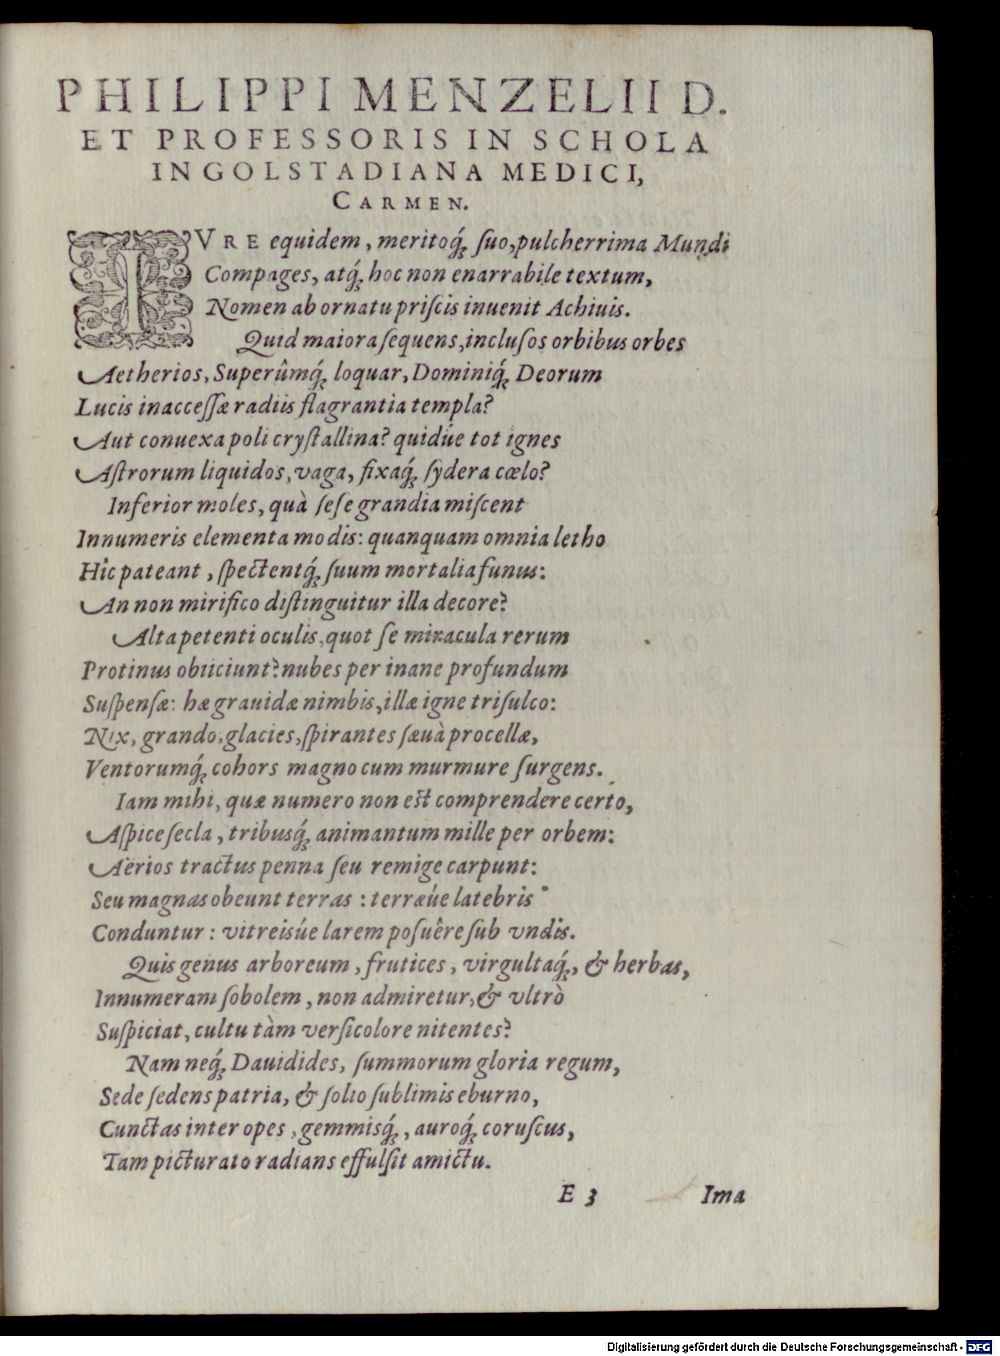 PHILIPPI MENZELII D.
ET PROFESSORIS IN SCHOLA
INGOLSTADIANA MEDICI,
CARMEN.
IVRE equidem, meritoq́; ſuo, pulcherrima Mundi
Compages, atq́; hoc non enarrabile textum,
Nomen ab ornatu priſcis inuenit Achiuis.
Quid maiora ſequens, incluſos orbibus orbes
Aetherios, Superûmq́; loquar, Dominiq́; Deorum
Lucis inacceſſæ radiis flagrantia templa?
Aut conuexa poli cryſtallina? quidúe tot ignes
Aſtrorum liquidos, vaga, fixaq́; ſydera cœlo?
Inferior moles, quà ſeſe grandia miſcent
Innumeris elementa modis: quanquam omnia letho
Hîc pateant, ſpectentq́; ſuum mortalia funus:
An non mirifico diſtinguitur illa decore?
Alta petenti oculis, quot ſe miracula rerum
Protinus obiiciunt? nubes per inane profundum
Suſpenſæ: hæ grauidæ nimbis, illæ igne triſulco:
Nix, grando, glacies, ſpirantes ſæuà procellæ,
Ventorumq́; cohors magno cum murmure ſurgens.
Iam mihi, quæ numero non eſt comprendere certo,
Aſpice ſecla, tribusq́; animantum mille per orbem:
Aërios tractus penna ſeu remige carpunt:
Seu magnas obeunt terras: terræúe latebris
Conduntur: vitreisúe larem poſuêre ſub vndis.
Quis genus arboreum, frutices, virgultaq́;, & herbas,
Innumeram ſobolem, non admiretur, & vltrò
Suſpiciat, cultu tàm verſicolore nitentes?
Nam neq́; Dauidides, ſummorum gloria regum,
Sede ſedens patria, & ſolio ſublimis eburno,
Cunctas inter opes, gemmisq́;, auroq́; coruſcus,
Tam picturato radians effulſit amictu.
E 3 Ima
Digitalisierung gefördert durch die Deutsche Forschungsgemeinschaft - DFG